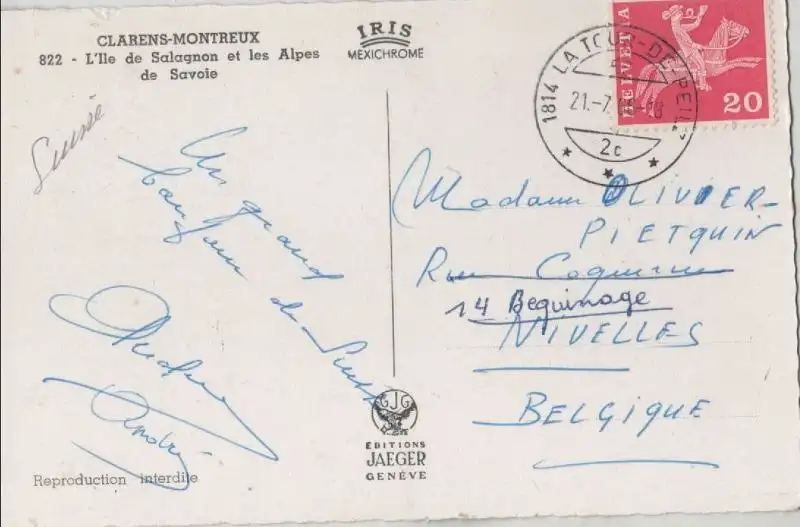 CLARENS-MONTREUX
822 - L'Ile de Salagnon et les Alpes
de Savoie
IRIS
MEXICHROME
Suisse
Un grand
bonjour de Suisse
André
Reproduction interdite
GJG
ÉDITIONS
JAEGER
GENÈVE
1814 LA TOUR-DE-PEILZ
21.-7.
-18
2c
HELVETIA
20
Madame OLIVIER-
PIETQUIN
Rue
14 Beguinage
NIVELLES
BELGIQUE